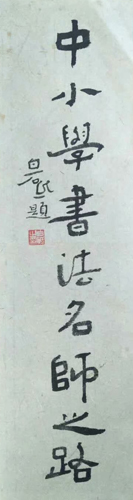 中小學書法名師之路